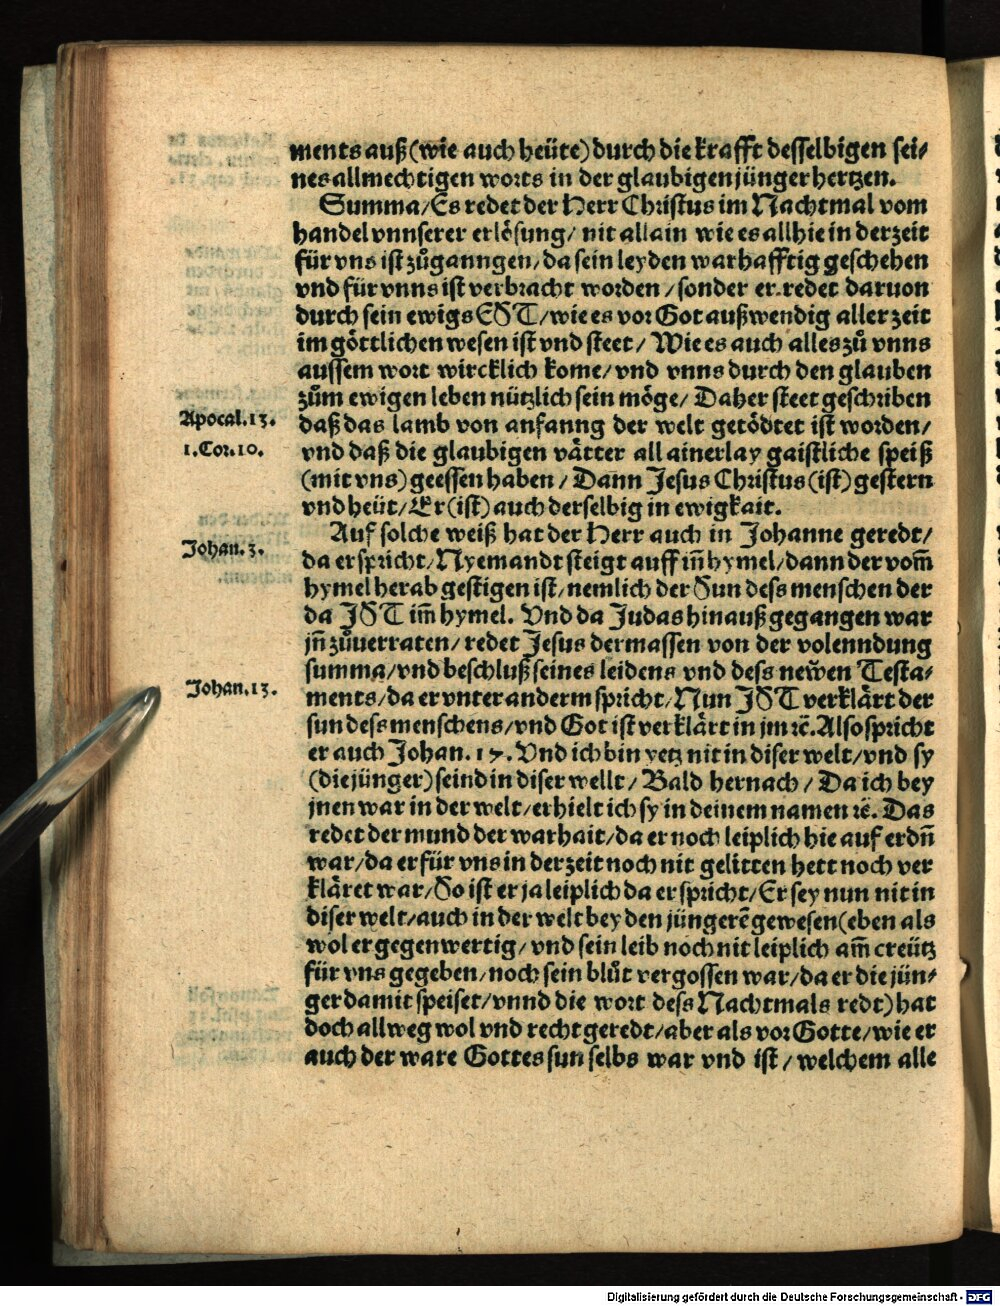 ments auß (wie auch heüte) durch die krafft desselbigen sei⸗
nes allmechtigen worts in der glaubigen jünger hertzen.
Summa/ Es redet der Herr Christus im Nachtmal vom
handel vnnserer erlösung/ nit allain wie es allhie in der zeit
für vns ist zůganngen/ da sein leyden warhafftig geschehen
vnd für vnns ist verbracht worden/ sonder er redet daruon
durch sein ewigs EST/ wie es vor Got außwendig aller zeit
im göttlichen wesen ist vnd steet/ Wie es auch alles zů vnns
aussem wort wircklich kome/ vnd vnns durch den glauben
zům ewigen leben nützlich sein möge/ Daher steet geschriben
Apocal. 13.
daß das lamb von anfanng der welt getödtet ist worden/
1. Cor. 10.
vnd daß die glaubigen vätter all ainerlay gaistliche speiß
(mit vns) geessen haben/ Dann Jesus Christus (ist) gestern
vnd heüt/ Er (ist) auch derselbig in ewigkait.
Auf solche weiß hat der Herr auch in Johanne geredt/
Johan. 3.
da er spricht/ Nyemandt steigt auff in̄ hymel/ dann der vom̄
hymel herab gestigen ist/ nemlich der Sun dess menschen der
da JST im̄ hymel. Vnd da Judas hinauß gegangen war
jn̄ zůuerraten/ redet Jesus dermassen von der volenndung
summa/ vnd beschluß seines leidens vnd dess newen Testa⸗
Johan. 13.
ments/ da er vnter anderm spricht/ Nun JST verklärt der
sun dess menschens/ vnd Got ist verklärt in jm ꝛc̄. Also spricht
er auch Johan. 17. Vnd ich bin yetz nit in diser welt/ vnd sy
(die jünger) seind in diser wellt/ Bald hernach/ Da ich bey
jnen war in der welt/ erhielt ich sy in deinem namen ꝛc̄. Das
redet der mund der warhait/ da er noch leiplich hie auf erdn̄
war/ da er für vns in der zeit noch nit gelitten hett noch ver
kläret war/ So ist er ja leiplich da er spricht/ Er sey nun nit in
diser welt/ auch in der welt bey den jüngerē gewesen (eben als
wol er gegenwertig/ vnd sein leib noch nit leiplich am̄ creütz
für vns gegeben/ noch sein blůt vergossen war/ da er die jün⸗
ger damit speiset/ vnnd die wort dess Nachtmals redt) hat
doch allweg wol vnd recht geredt/ aber als vor Gotte/ wie er
auch der ware Gottes sun selbs war vnd ist/ welchem alle
Digitalisierung gefördert durch die Deutsche Forschungsgemeinschaft - DFG